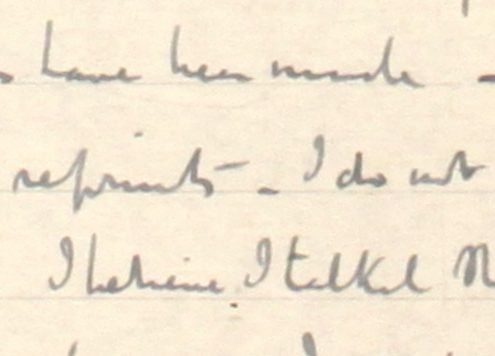 have been made -
reprints - I do not
I believe I talked